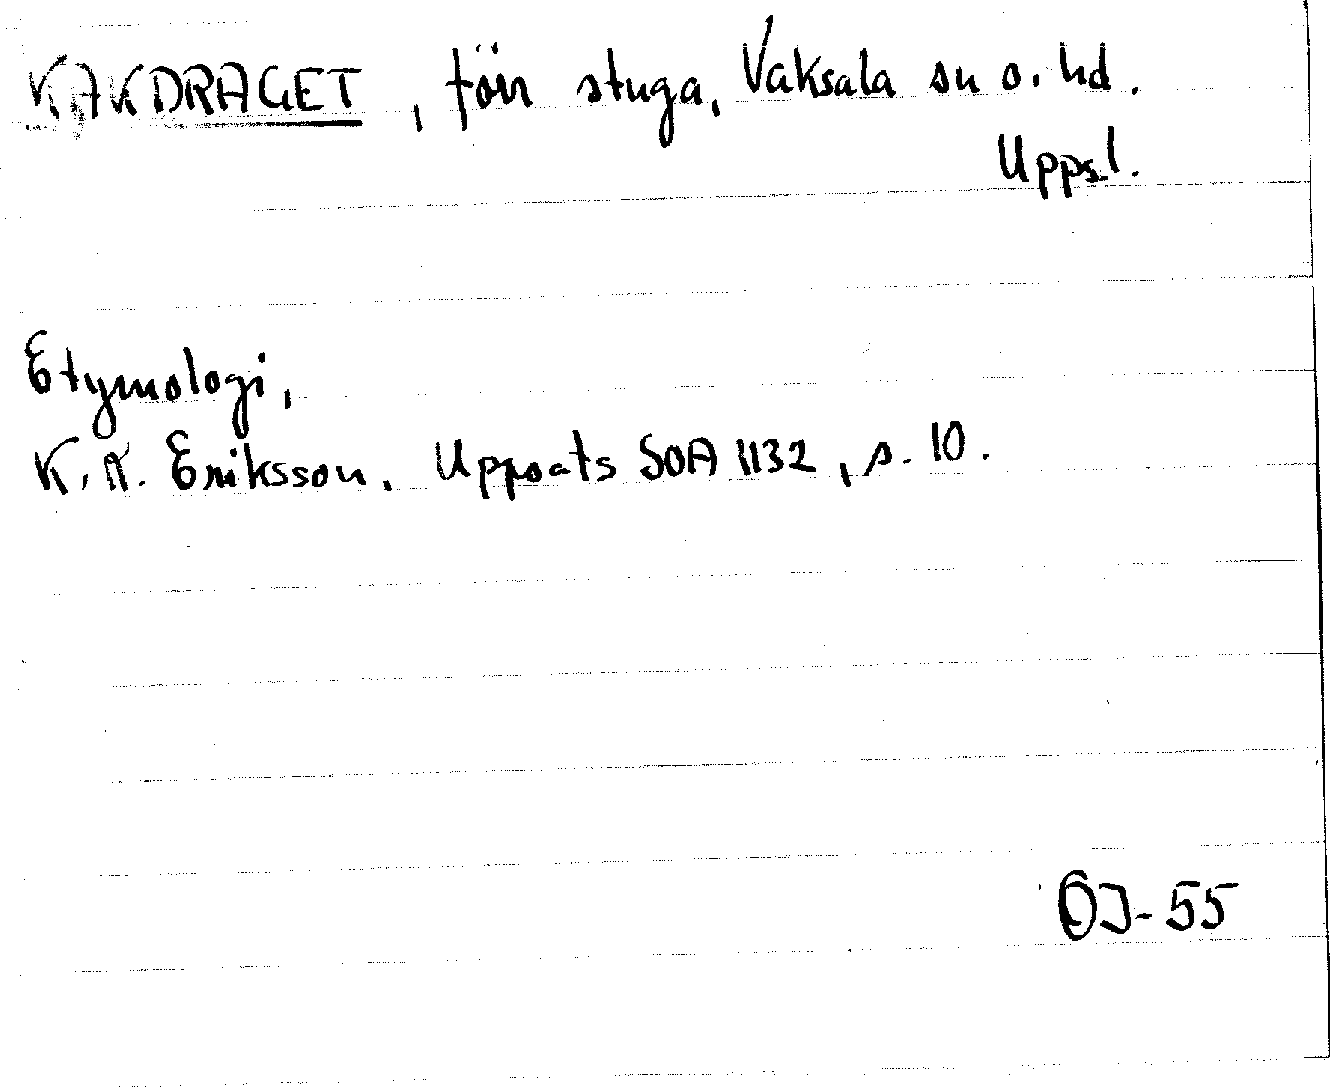 KAKDRAGET, förr stuga, Vaksala sn o. hd.
Uppsl.
Etymologi,
K. A. Eriksson. Uppsats SOA 1132, s. 10.
OJ-55